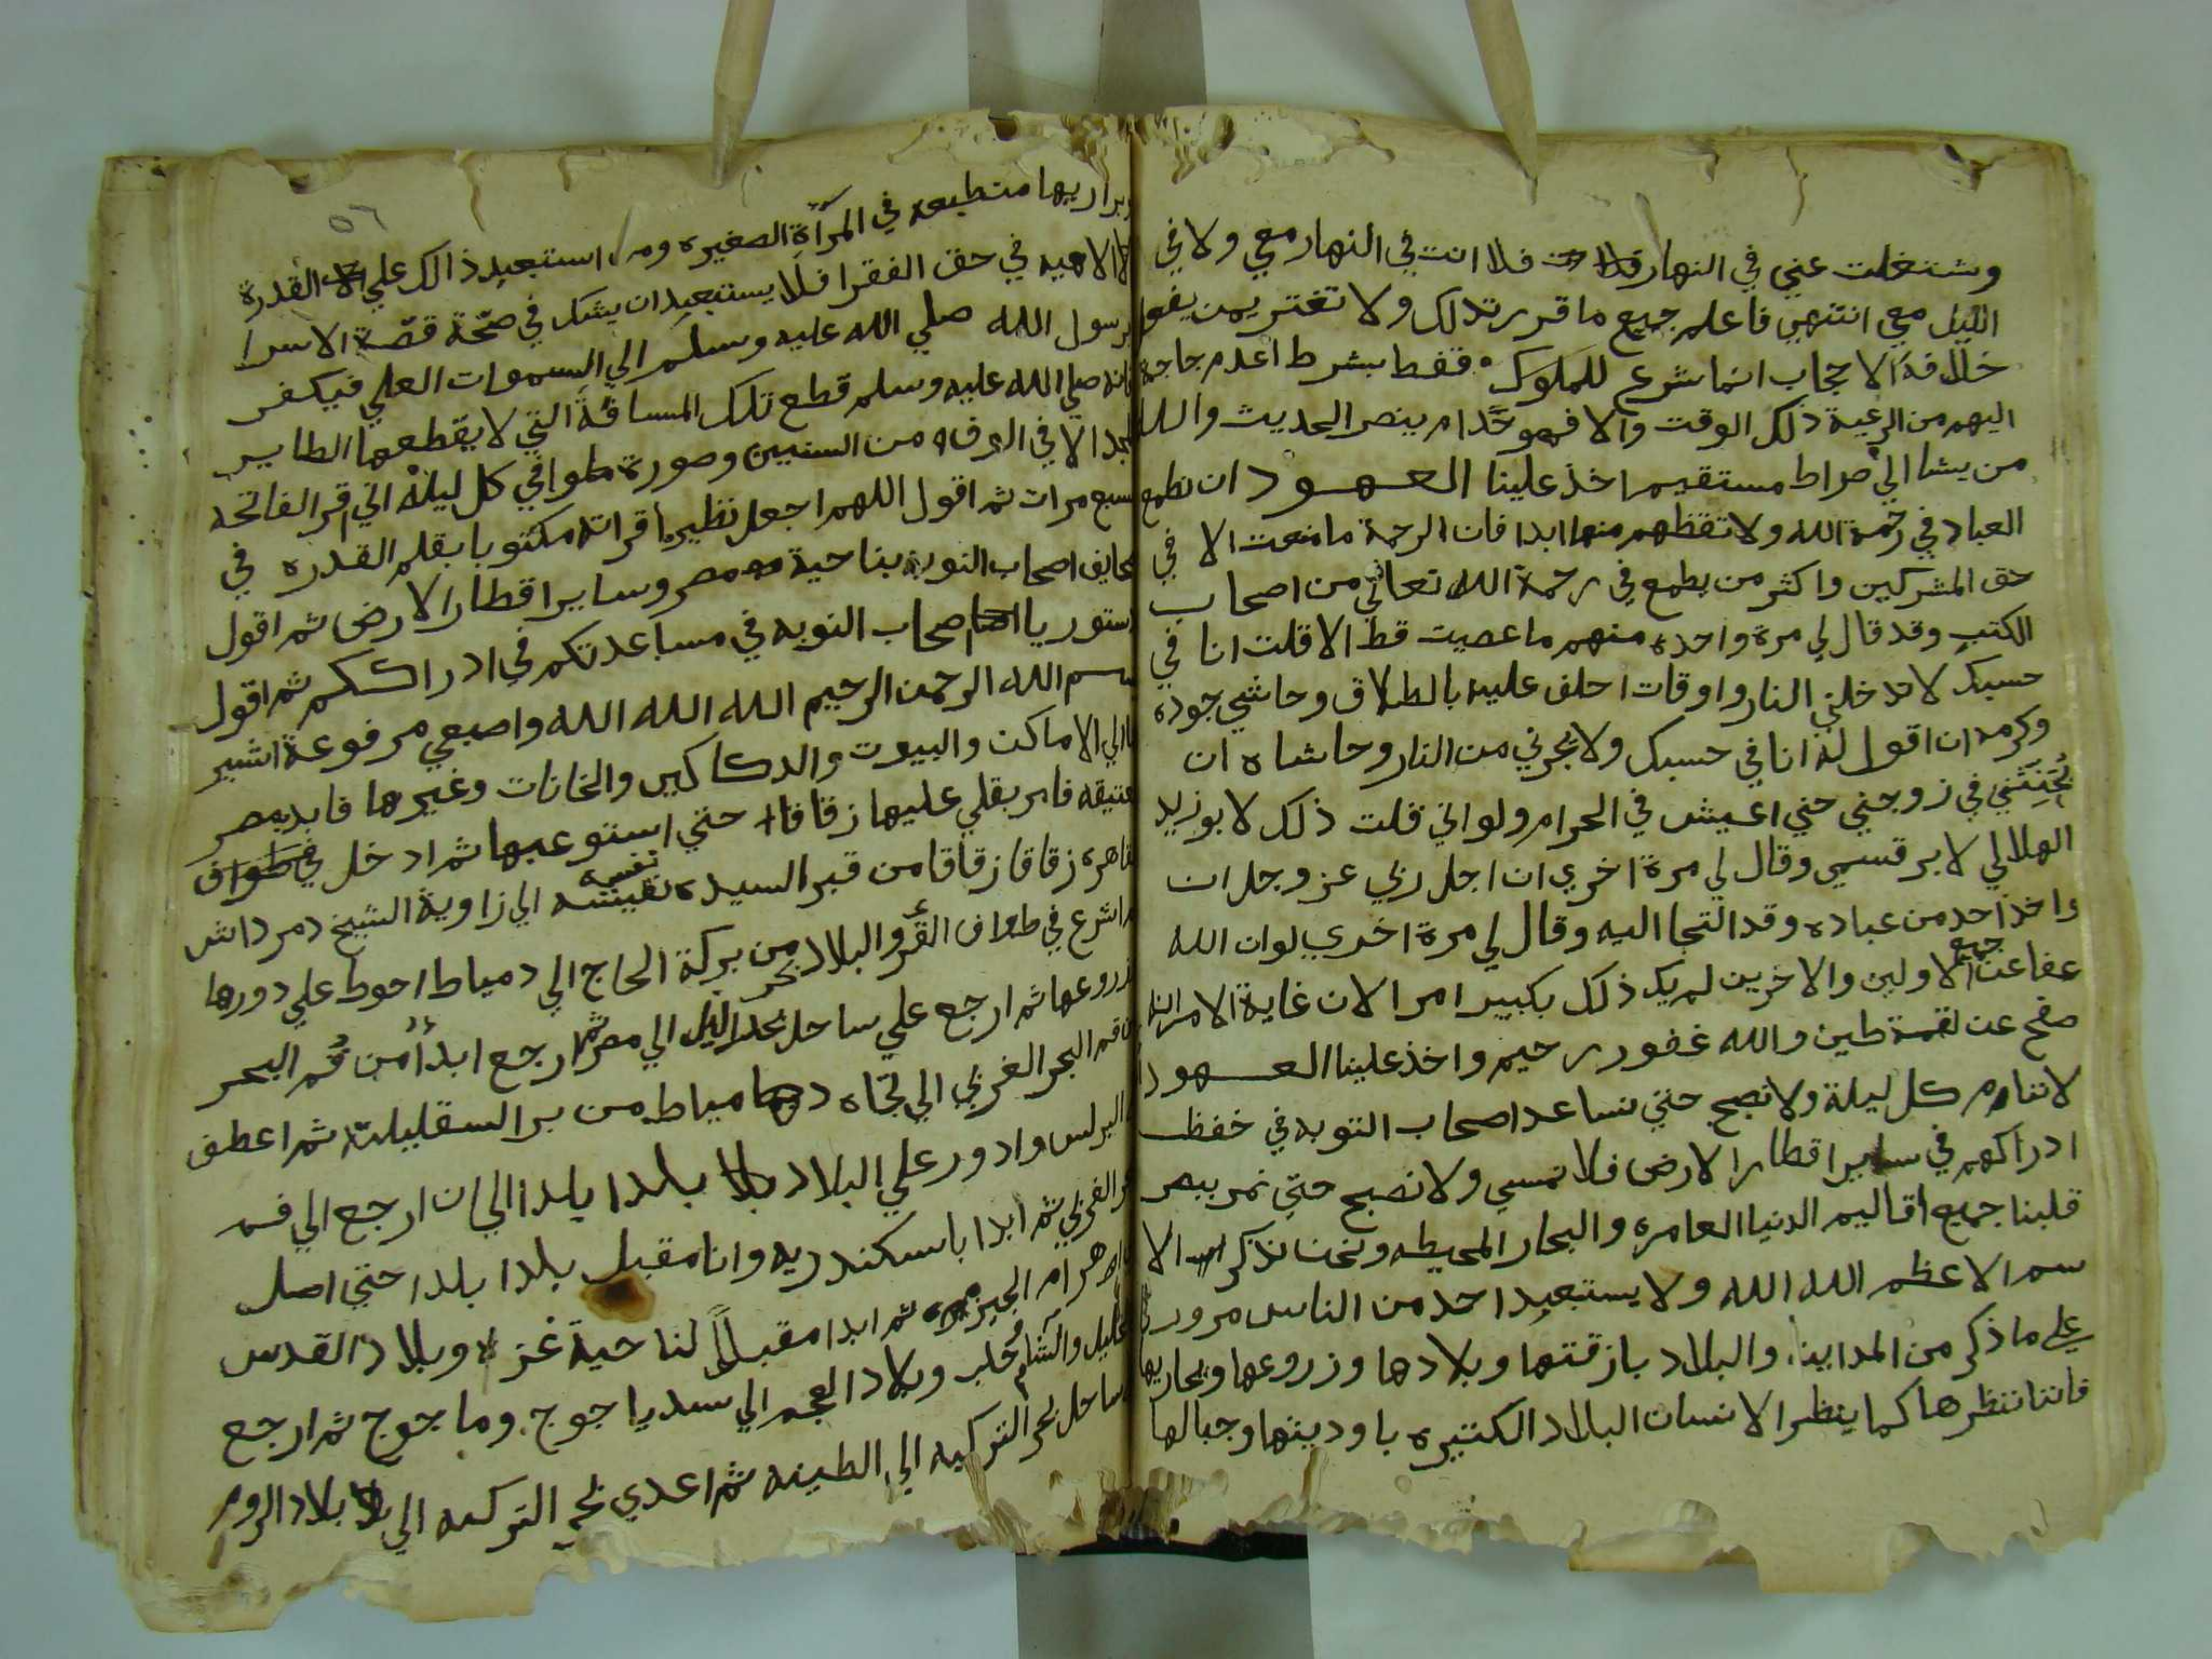 وشتغلت عني في النهار فلا انت في النهار معي ولا في
الليل معي انتهي فاعلم جميع ما قررته لك ولا تغتر بمن يفعل
خلافه الا حجاب انما شرع للملوك فقط بشرط اعدم حاجة
اليهم من الرعية ذلك الوقت والا فهو حرام بنص الحديث والله
من يشا الي صراط مستقيم اخذ علينا العهود ان نطمع
العباد في رحمة الله ولا تقنطهم منها ابدا فان الرحمة ما منعت الا في
حق المشركين واكثر من يطمع في رحمة الله تعالي من اصحاب
الكتب وقد قال لي مرة واحده منهم ما عصيت قط الا قلت انا في
حسبك لا تدخلني النار واوقات احلف عليه بالطلاق وحاشي جوده
وكرمه ان اقول له انا في حسبك ولا يجرني من النار وحاشاه ان
يحنثني في زوجتي حتي اعيش في الحرام ولو اني قلت ذلك لابو زيد
الهلالي لابر قسمي وقال لي مرة اخري ان اجل ربي عز وجل ان
واخذ احد من عباده وقد التجا اليه وقال لي مرة اخري لو ان الله
عفا عن جميع الاولين والاخرين لم يك ذلك بكبير امر الان غاية الامر انه
صفح عن لقمة طين والله غفور رحيم واخذ علينا العهود
لا ننام كل ليلة ولا نصبح حتي نساعد اصحاب النوبه في حفظ
ادراكهم في ساير اقطار الارض فلا نمسي ولا نصبح حتي نمر ببصر
قلبنا جميع اقاليم الدنيا العامره والبحار المحيطه ونحن نذكر الا
سم الاعظم الله الله ولا يستبعد احد من الناس مرور
علي ما ذكر من المداين والبلاد بازقتها وبلادها وزروعها وبحاريها
فاننا ننظرها كما ينظر الانسان البلاد الكثيره باوديتها وجبالها
وبراريها منطبعه في المرآة الصغيره ومن استبعد ذالك علي القدرة
الالاهيه في حق الفقرا فلا يستبعد ان يشك في صحة قصة الاسرا
برسول الله صلي الله عليه وسلم الي السموات العلي فيكفر
فانه صلي الله عليه وسلم قطع تلك المسافة التي لا يقطعها الطاير
المجد الا في الوف من السنين وصورة طوافي كل ليلة اني اقرا الفاتحه
سبع مرات ثم اقول اللهم اجعل نظير ما قراته مكتوبا بقلم القدره في
صحايف اصحاب النوبه بناحية مصر وساير اقطار الارض ثم اقول
دستور يا اصحاب النوبه في مساعدتكم في ادراككم ثم اقول
بسم الله الرحمن الرحيم الله الله الله واصبعي مرفوعة اشير
بها الي الاماكن والبيوت والدكاكين والخانات وغيرها فابدا بمصر
عتيقه فامر بقلبي عليها زقاقا حتي استوعبها ثم ادخل في طواف
القاهره زقاقا زقاقا من قبر السيده نفيسه الي زاوية الشيخ دمرداش
ثم اشرع في طواف القري والبلاد من بركة الحاج الي دمياط احوط علي دورها
وزروعها ثم ارجع علي ساحل بحر النيل الي مصر ثم ارجع ابدأ من فم البحر
من فم البحر الغربي الي تجاه دمياط من بر السقليلة ثم اعطف
الي البرلس وادور علي البلاد بلدا بلدا الي ان ارجع الي فم
البحر الغربي ثم ابدا باسكندريه وانا مقبل بلدا بلدا حتي اصل
الي اهرام الجيزه ثم ابدا مقبلاً لناحية غزه وبلاد القدس
والخليل والشام وحلب وبلاد العجم الي سد ياجوج وماجوج ثم ارجع
ساحل بحر التركيه الي الطينه ثم اعدي بحر التركيه الي بلاد الروم